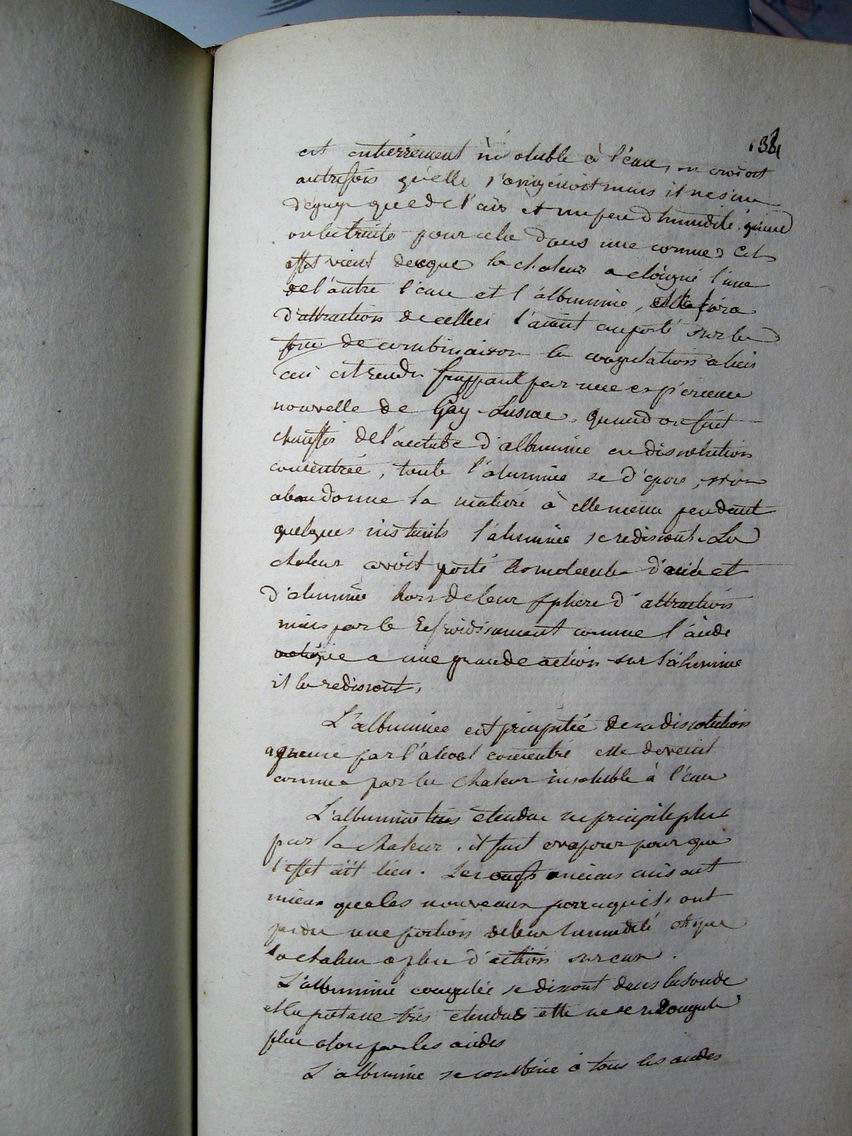 134
est entièrement insoluble à l'eau, on croioit
autrefois qu'elle s'oxigenoit mais il ne se
dégage que de l'air et un peu d'humidité quand
on la traite pour cela dans une cornue. Cet
effet vient de ce que la chaleur a éloigné l'une
de l'autre l'eau et l'albumine, et la force
d'attraction de celleci l'aiant emporté sur la
force de combinaison la coagulation a lieu
ceci est rendu frappant par une expérience
nouvelle de Gay-Lussac. quand on fait
chauffer de l'acétate d'alumine en dissolution
concentrée, toute l'alumine se dépose, si on
abandonne la matière à elle meme pendant
quelques instants l'alumine se redissout. La
chaleur avoit porté la molecule d'acide et
d'alumine hors de leur sphere d'attraction
mais par le refroidissement comme l'acide
a une grande action sur l'alumine
il la redissout.
L'albumine est précipitée de sa dissolution
aqueuse par l'alcool concentré elle devient
comme par la chaleur insoluble à l'eau
L'albumine très étendue ne précipite plus
par la chaleur. il faut évaporer pour que
l'effet ait lieu. Les oeufs anciens cuisent
mieux que les nouveaux parcequ'ils ont
perdu une portion de leur humidité et que
la chaleur a plus d'action sur eux.
L'albumine coagulée se dissout dans la soude
et la potasse très étendues elle ne se recoagule
plus alors par les acides
L'albumine se combine à tous les acides